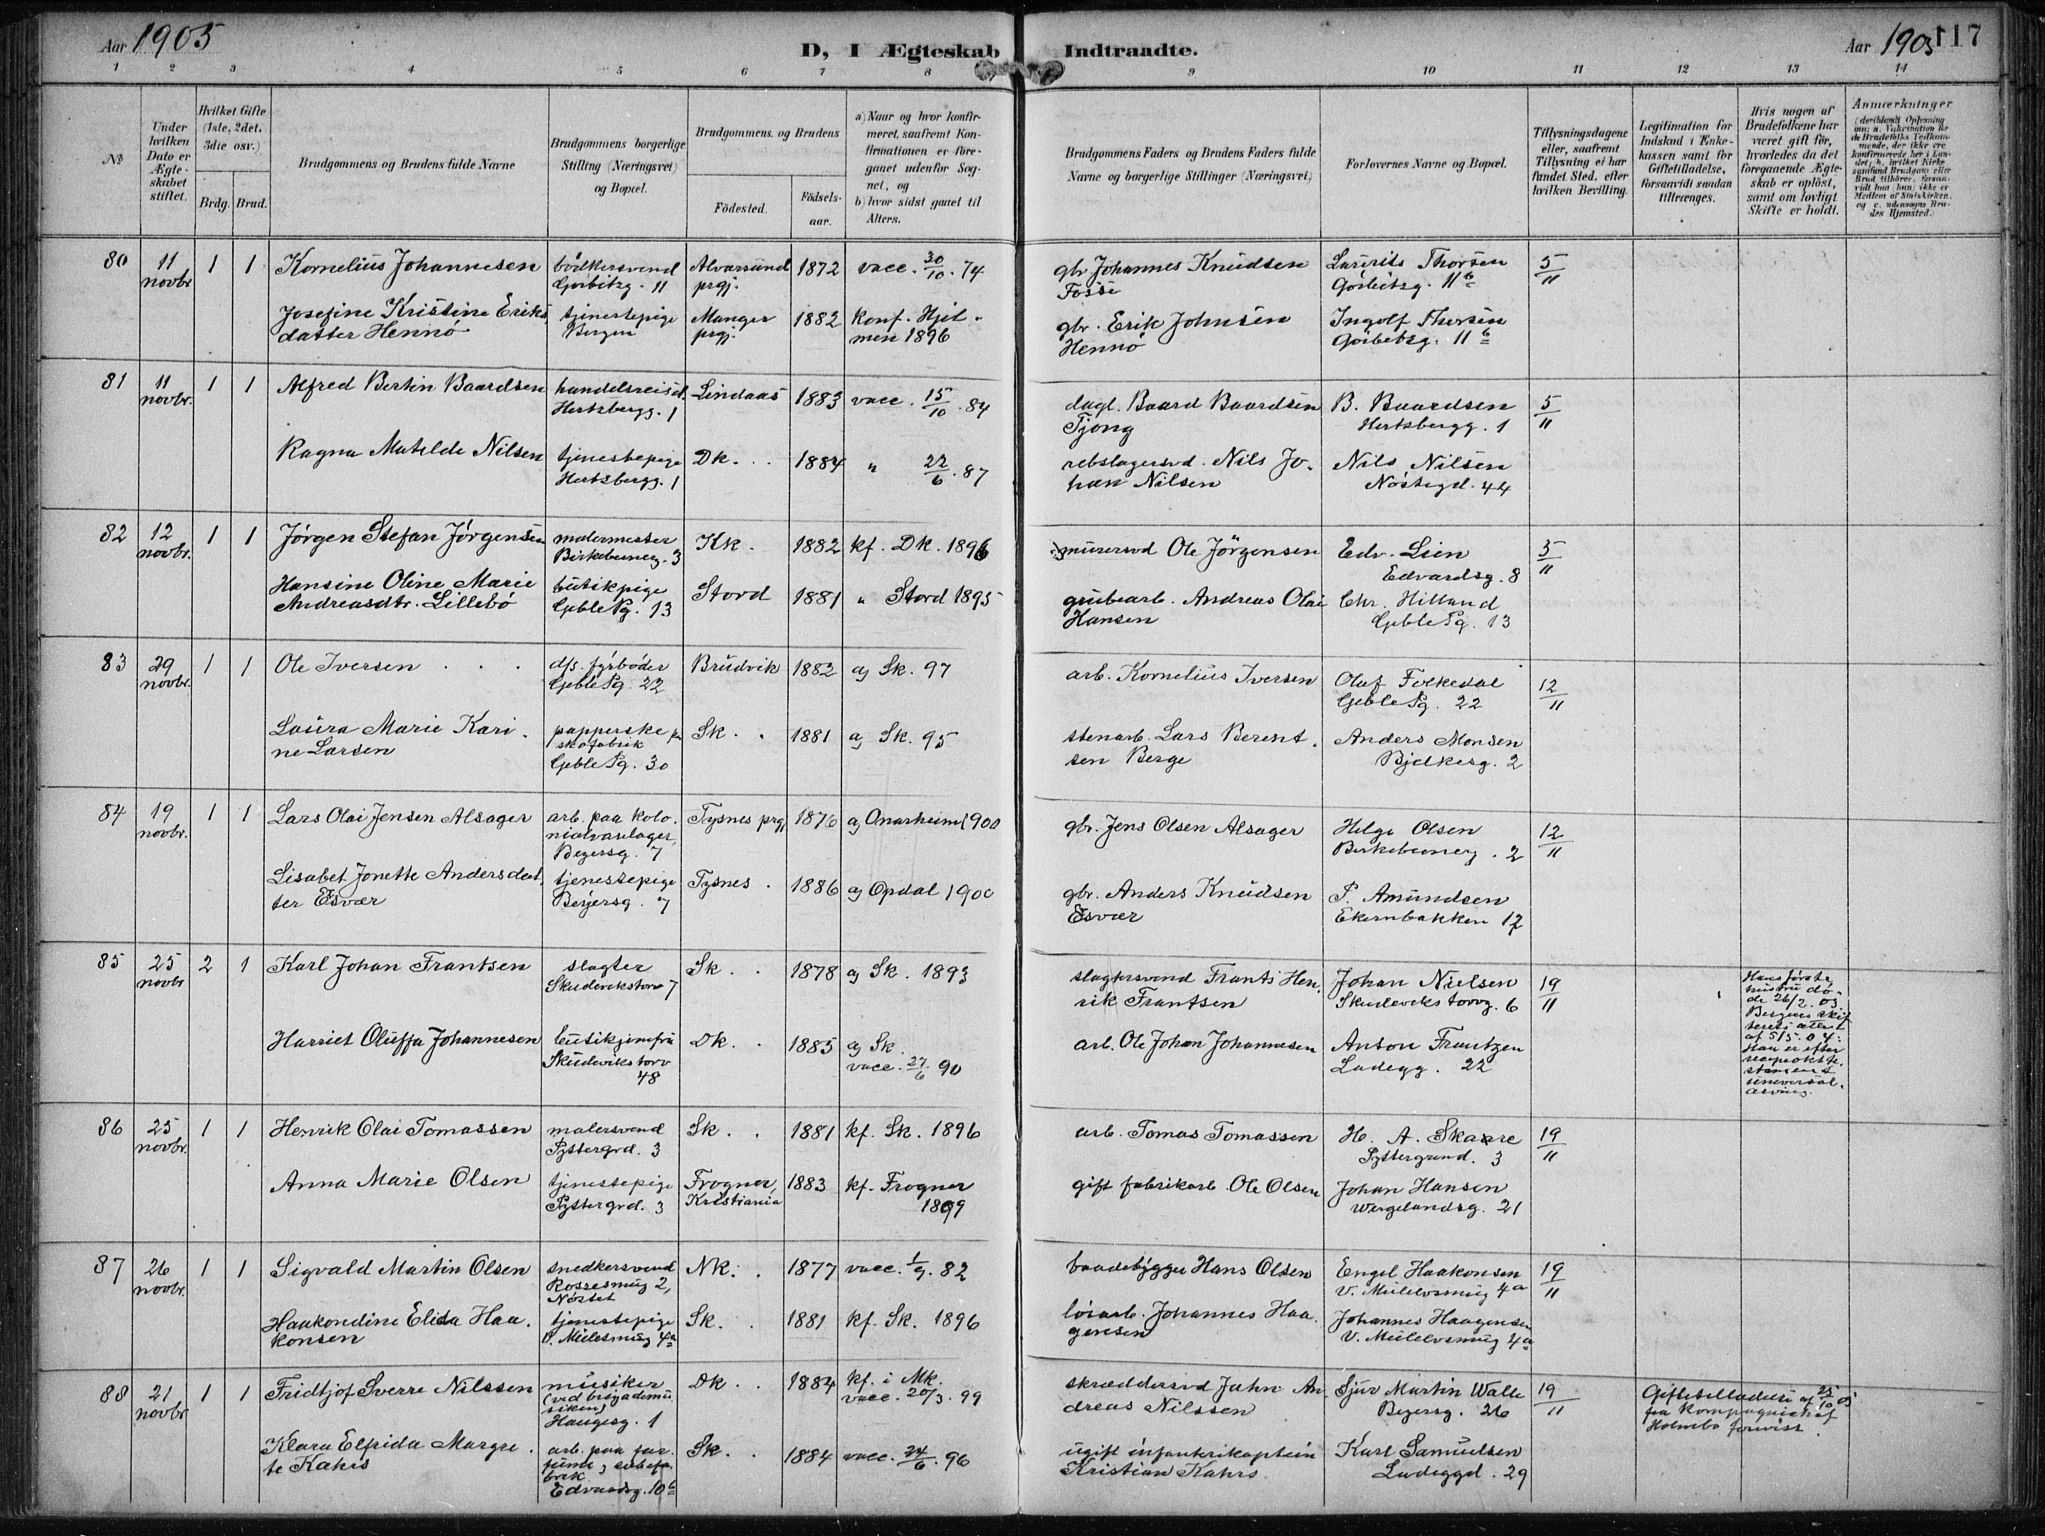 Aar 1905
D, I Ægteskab Indtraadte.
Aar 1905
117
1 2 3 4 5 6 7 8 9 10 11 12 13 14
No
Under hvilken Dato er Ægteskabet stiftet.
Hvilket Gifte (1ste, 2det, 3die osv.)
Brdg. Brud.
Brudgommens og Brudens fulde Navne
Brudgommens borgerlige Stilling (Næringsvei) og Bopæl.
Brudgommens og Brudens
Födested.
Födsels-aar.
a) Naar og hvor konfirmeret, saafremt Konfirmationen er foregaaet udenfor Sognet, og
b) hvor sidst gaaet til Alters.
Brudgommens Faders og Brudens Faders fulde Navne og borgerlige Stillinger (Næringsvei)
Forlovernes Navne og Bopæl.
Tillysningsdagene eller, saafremt Tillysning ei har fundet Sted, efter hvilken Bevilling.
Legitimation for Indskud i Enkekassen samt for Giftetilladelse, forsaavidt saadan tiltrænges.
Hvis nogen af Brudefolkene har været gift för, hvorledes da det foregaaende Ægteskab er oplöst, samt om lovligt Skifte er holdt.
Anmærkninger
80 11 novbr 1 1 Kornelius Johannesen bödkersvend Alversund 1872 vacc. 30/10. 74 gbr Johannes Knudsen Laurits Thorsen 5/11
prgj. Fosse
Josefine Kristine Eriks tjenestepige Manger 1882 konf. Hjel- gbr. Erik Johnsen Ingolf Thorsen
datter Hennö Bergen prgj. men 1896 Hennö
81 11 novbr. 1 1 Alfred Bertin Baardsen handelsreisd. Lindaas 1883 vacc. 15/10. 84 dagl. Baard Baardsen B. Baardsen 5/11
Hertzbergg. 1 Tjong Hertzbergg. 1
Ragna Matilde Nilsen tjenestepige Dk. 1884 " 22/6. 87 rebslagersvd. Nils Jo- Nils Nilsen
Hertzbergg. 1 han Nilsen Nöstegd. 44
82 12 novbr. 1 1 Jörgen Stefan Jörgensen malermester Kk. 1882 kf. Dk. 1896 murersvd Ole Jörgensen Edv. Lien 5/11
Birkebeinerg. 3 Edvardsg. 8
Hansine Oline Marie butikpige Stord 1881 " Stord 1895 grubearb. Andreas Olai Chr. Hilland
Andreasdtr. Lillebö 13 Hansen 13
83 29 novbr. 1 1 Ole Iversen d/s. fyrböder Bruvik 1882 ag Sk. 97 arb. Kornelius Iversen Olaf Folkedal 12/11
22 22
Laura Marie Kari- Sk. 1881 ag Sk. 95 stenarb. Lars Berent- Anders Monsen
ne Larsen skofabrik 30 sen Berge 2
84 19 novbr. 1 1 Lars Olai Jensen Alsager arb. paa kolo- Tysnes prgj 1876 ag Onarheim 1900 gbr. Jens Olsen Alsager Helge Olsen 12/11
nialvarelager, Birkebeinerg. 2
7
Lisabet Jonette Andersdat- tjenestepige Tysnes 1886 ag Opdal 1900 gbr. Anders Knudsen P. Amundsen
ter Esvær 7 Esvær Ekernbakken 12
85 25 novbr 2 1 Karl Johan Frantsen slagter Sk. 1878 ag Sk. 1893 slagtersvend Frants Hen- Johan Nielsen 19/11 Hans förste hustru dö-
Skudevikstorv 7 rik Frantsen Skudeviks torvg. 6 de 26/2. 03.
Harriet Oluffa Johannesen butikjomfru Dk. 1885 ag Sk. arb. Ole Johan Johannesen Anton Frantzen Bergens skif-
Skudevikstorv 48 vacc. 27/6 90 Ladegg. 22 teretts attest
af 5/5. 04:
Han er efter
reciprokt te-
stament
universal-
arving.
86 25 novbr. 1 1 Henrik Olai Tomassen malersvend Sk. 1881 kf. Sk. 1896 arb. Tomas Tomassen H. A. Skaare 19/11
Pyttergrd. 3 Pyttergrand. 3
Anna Marie Olsen tjenestepige Frogner, 1883 kf. Frogner gift fabrikarb. Ole Olsen Johan Hansen
Pyttergrd. 3 Kristiania 1899 Wergelandsg. 21
87 26 novbr. 1 1 Sigvald Martin Olsen snedkersvend Nk. 1877 vacc. 1/9. 82 baadebygger Hans Olsen Engel Haakonsen 19/11
Rossesmug 2, Nöstet 4a
Haakondine Elida Haa- tjenestepige Sk. 1881 kf. Sk. 1896 Johannes Haa- Johannes Haagensen
konsen 4a gensen 4a
88 21 novbr 1 1 Fridtjof Sverre Nilssen musiker Dk 1884 kf. i Mk. skræddersvd John An- Sjur Martin Walle 19/11 Giftetilladelse af 25/10 05
(ved brigademu- vacc. 20/3. 99 dreas Nilssen 26 fra kompagnichef
siken) Holmbo forevist.
Haugesg. 1
Klara Elfrida Margre- arb. paa par- Sk. 1884 vacc. 24/6. 96 ugift infanterikaptein Karl Samuelsen
te Kahrs füme & sæbefa- Kristian Kahrs. Ladeggd. 29
brik
Edvardsg. 10b